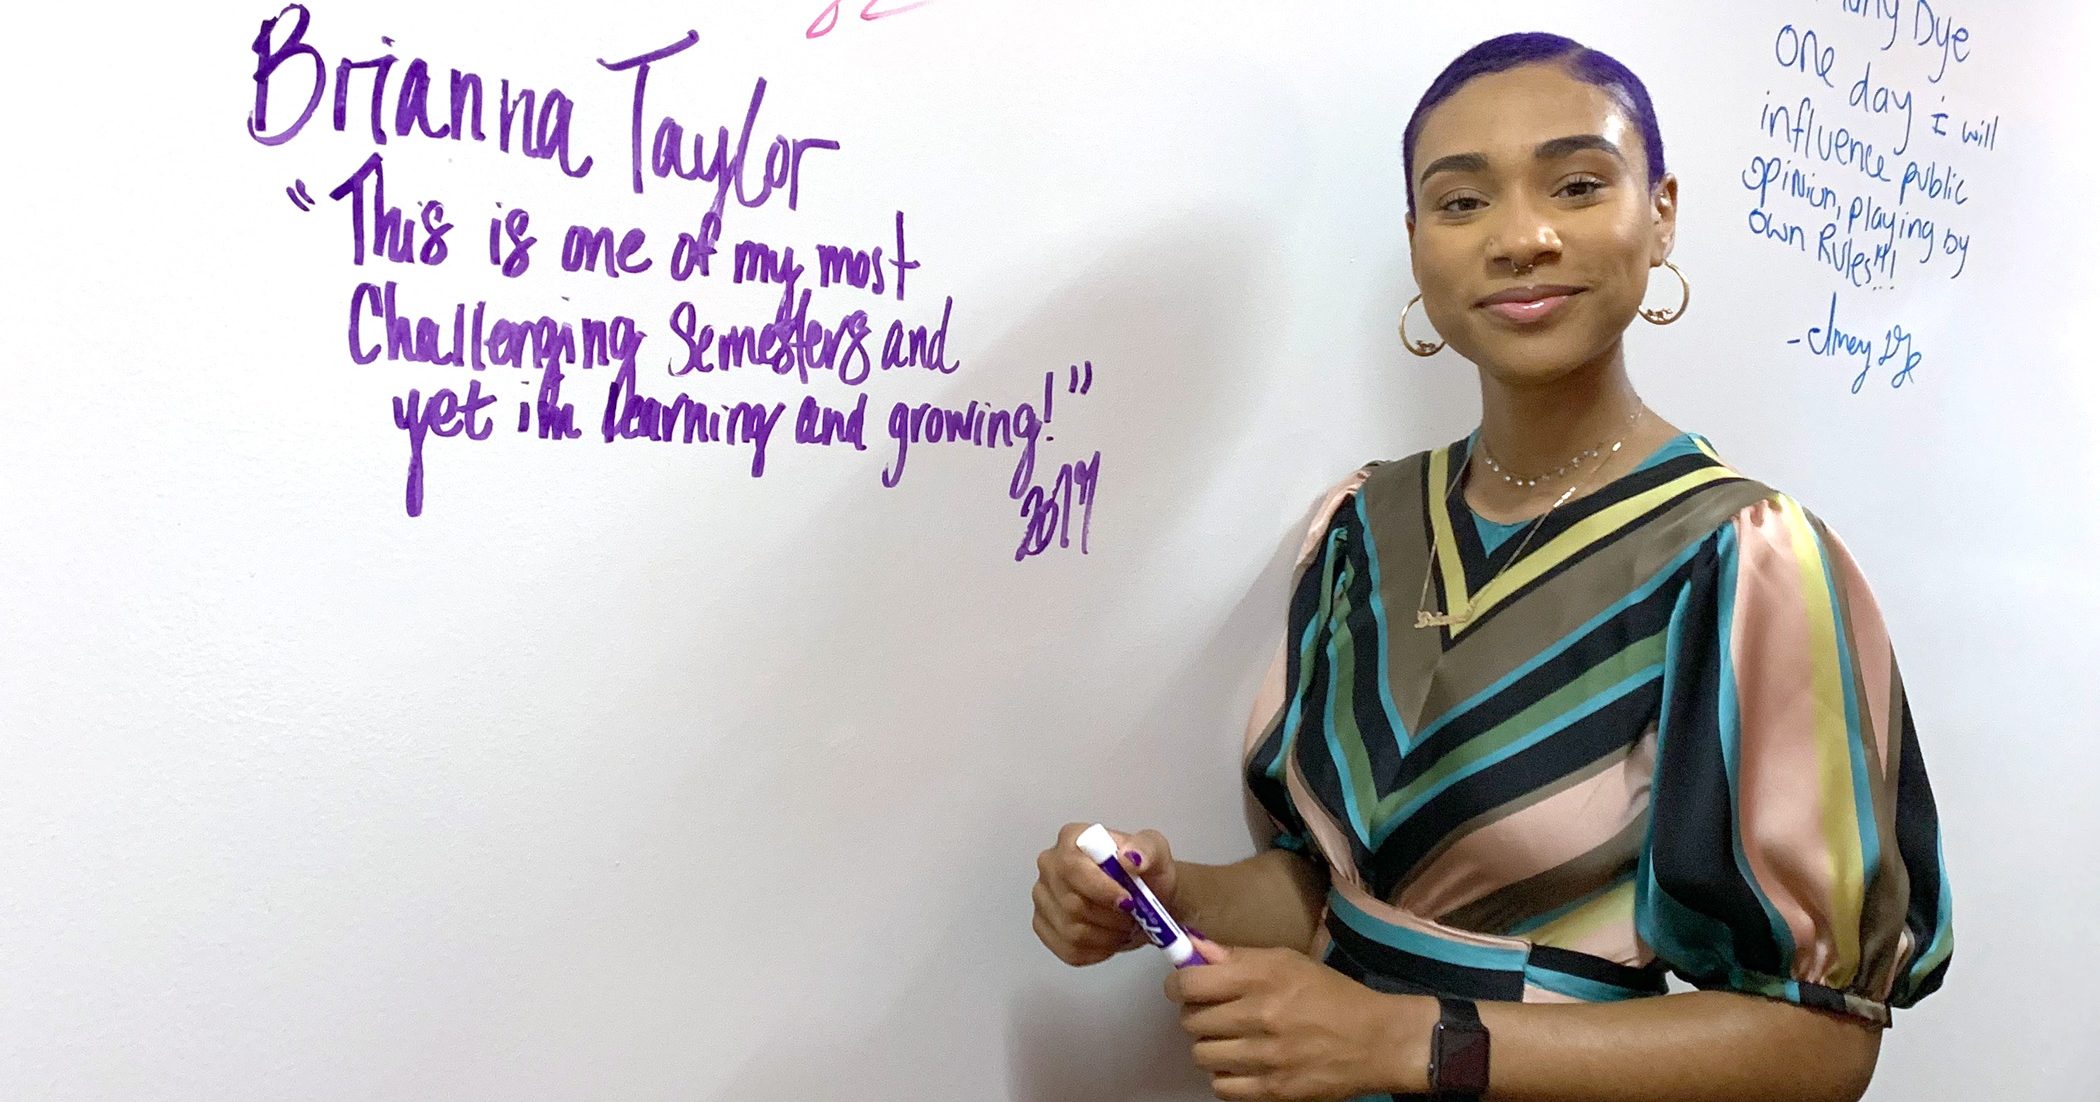 Brianna Taylor
"This is one of my most
Challenging Semesters and
yet i'm learning and growing!"
Dye
One day i will
influence public
opinion, playing by
own Rules!!!